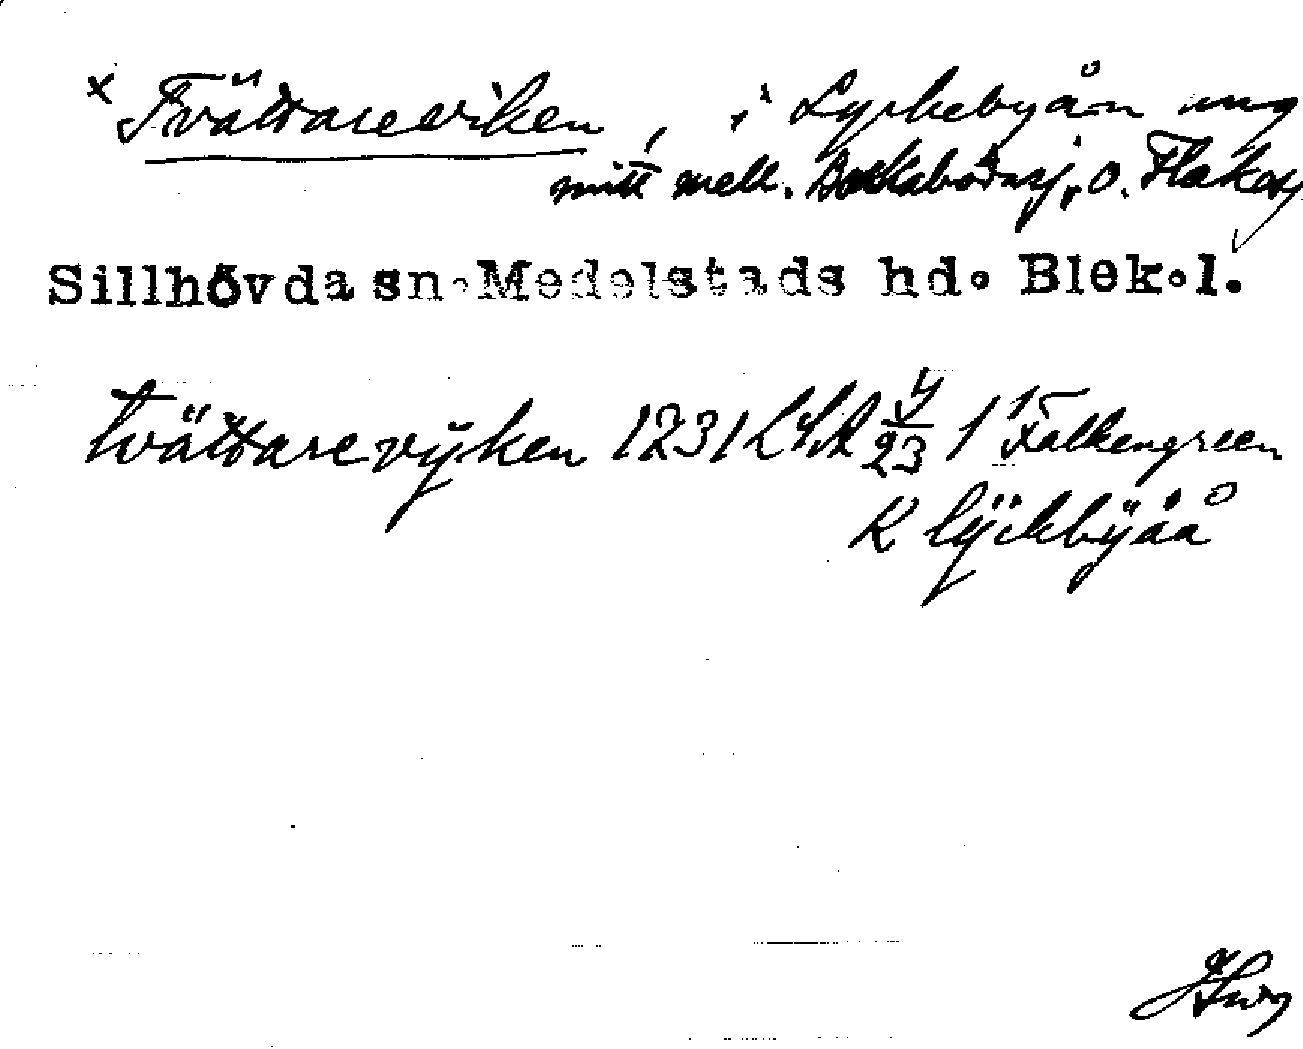 x Tvättareviken, i Lyckebyån ung
mitt mell. Bockabodasj. o. Flaken
Sillhövda sn. Medelstads hd. Blek.l.
tvättarevÿken 1231 LSA Y/23 1 Falkengreen
K lÿckbÿåå